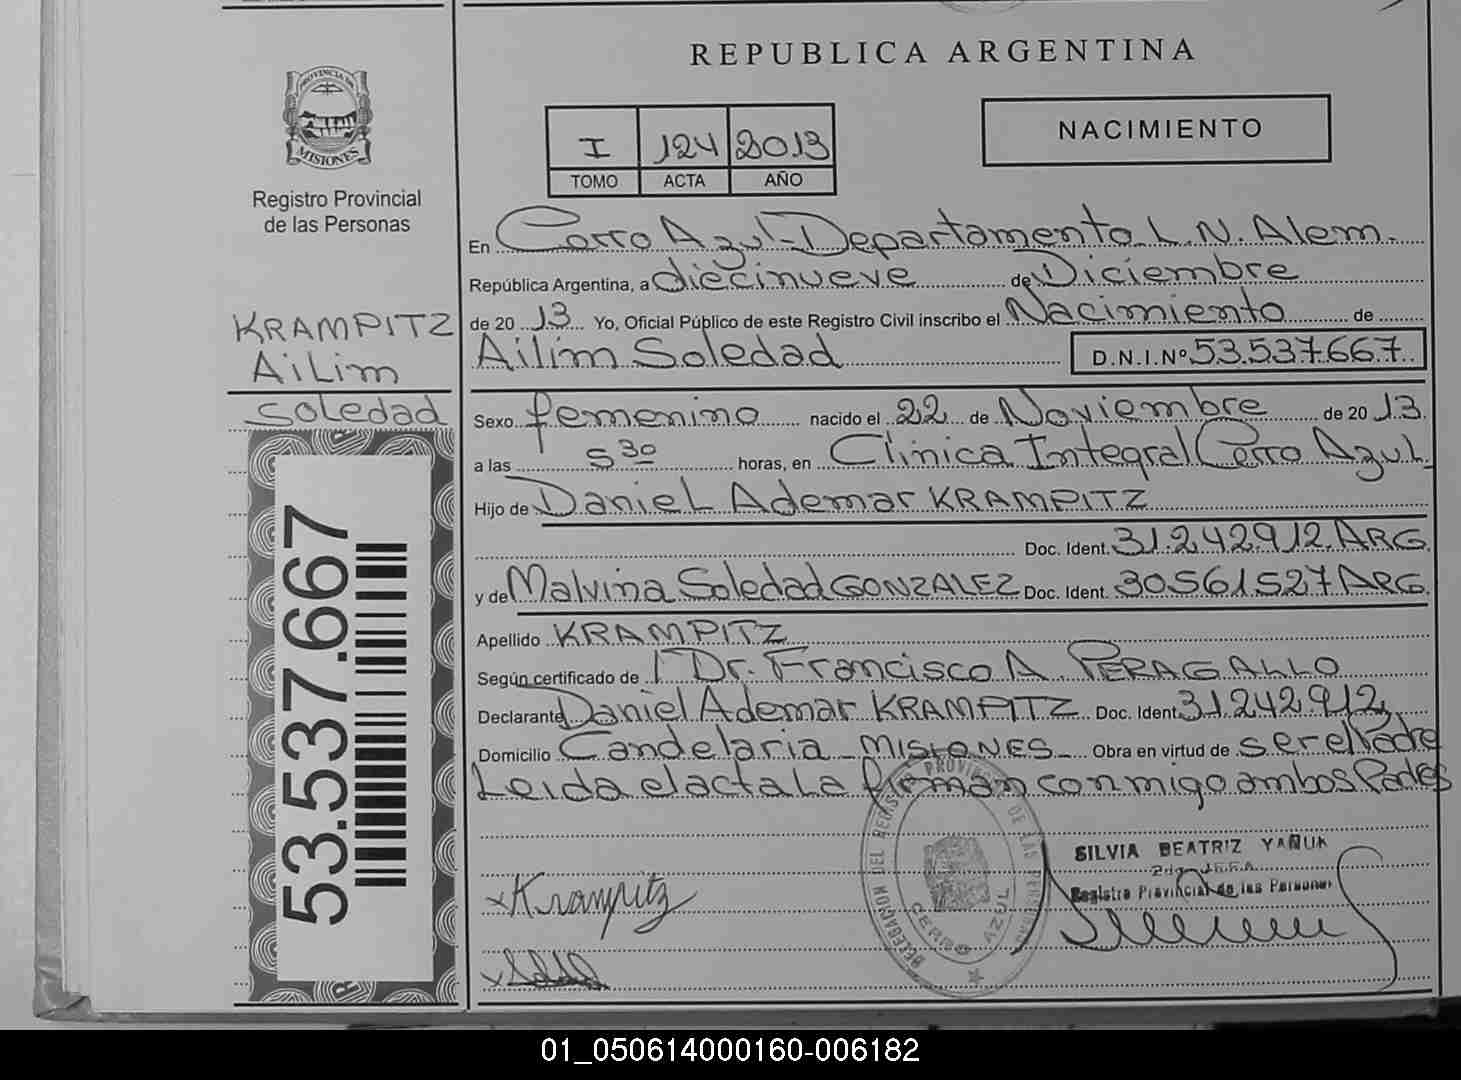 REPUBLICA ARGENTINA
PROVINCIA DE
MISIONES
Registro Provincial
de las Personas
I 124 2013
TOMO ACTA AÑO
NACIMIENTO
KRAMPITZ
AiLim
Soledad
53.537.667
En Cerro Azul - Departamento L.N. Alem.
República Argentina, a diecinueve de Diciembre
de 20 13 Yo, Oficial Público de este Registro Civil inscribo el Nacimiento de
Ailim Soledad D.N.I.Nº 53.537.667
Sexo femenino nacido el 22 de Noviembre de 20 13
a las 5 30 horas, en Clinica Integral Cerro Azul
Hijo de Daniel Ademar KRAMPITZ
Doc. Ident. 31.242.912 ARG
y de Malvina Soledad GONZALEZ Doc. Ident. 30561527 ARG
Apellido KRAMPITZ
Según certificado de Dr. Francisco A. PERAGALLO
Declarante Daniel Ademar KRAMPITZ Doc. Ident 31.242.912
Domicilio Candelaria - MISIONES - Obra en virtud de ser el Padre
Leida el acta la firman conmigo ambos Padres
DELEGACION DEL REGISTRO PROVINCIAL DE LAS PERSONAS
CERRO AZUL
SILVIA BEATRIZ YAÑUK
Registro Provincial de las Personas
x Krampitz
01_050614000160-006182